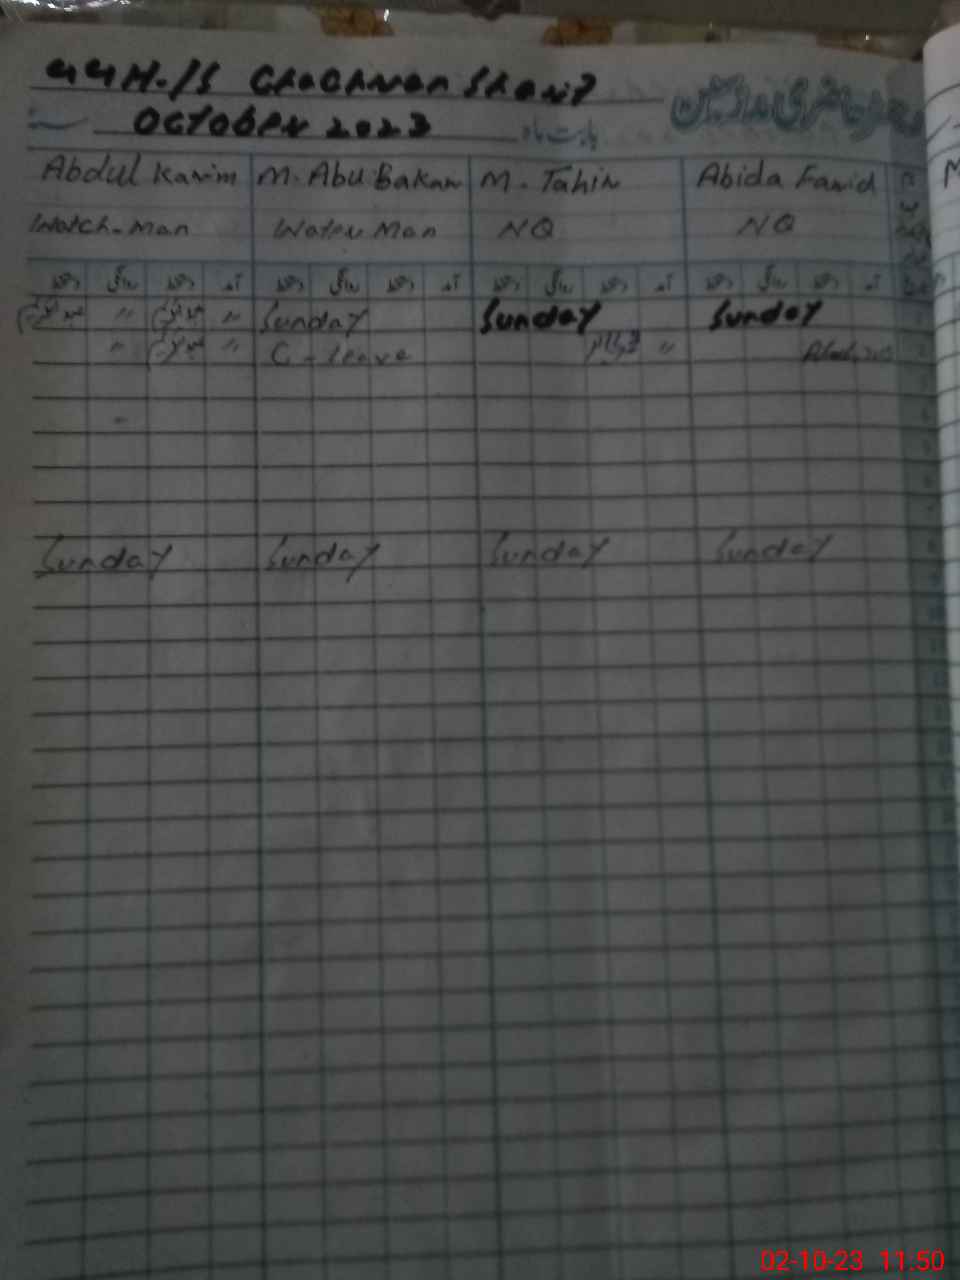 H./S Chachran Sharif
رجسٹر حاضری مدرسین
October 2023 بابت ماہ
Abdul Karim M. Abu Bakar M. Tahir Abida Farid
Watch-man Water Man NQ NQ
دستخط روانگی دستخط آمد دستخط روانگی دستخط آمد دستخط روانگی دستخط آمد دستخط روانگی دستخط آمد
" " Sunday Sunday Sunday
" " C-leave "
Sunday Sunday Sunday Sunday
02-10-23 11.50